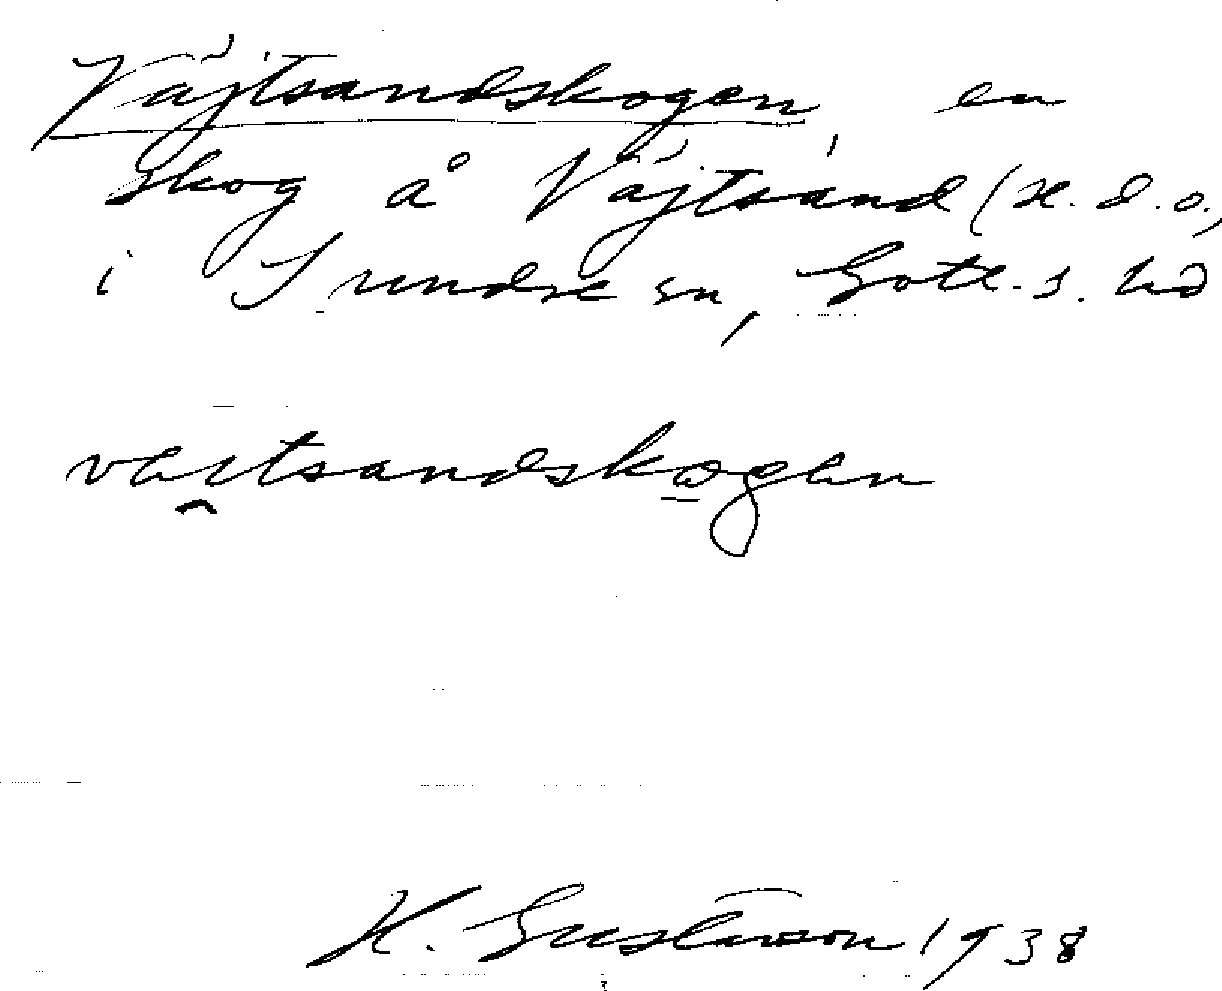 Väjtsandskogen en
skog å Väjtsand (se. d. o.,
i Sundre sn, Gotl. s. hd
väitsandskogen
H. Gustavson 1938